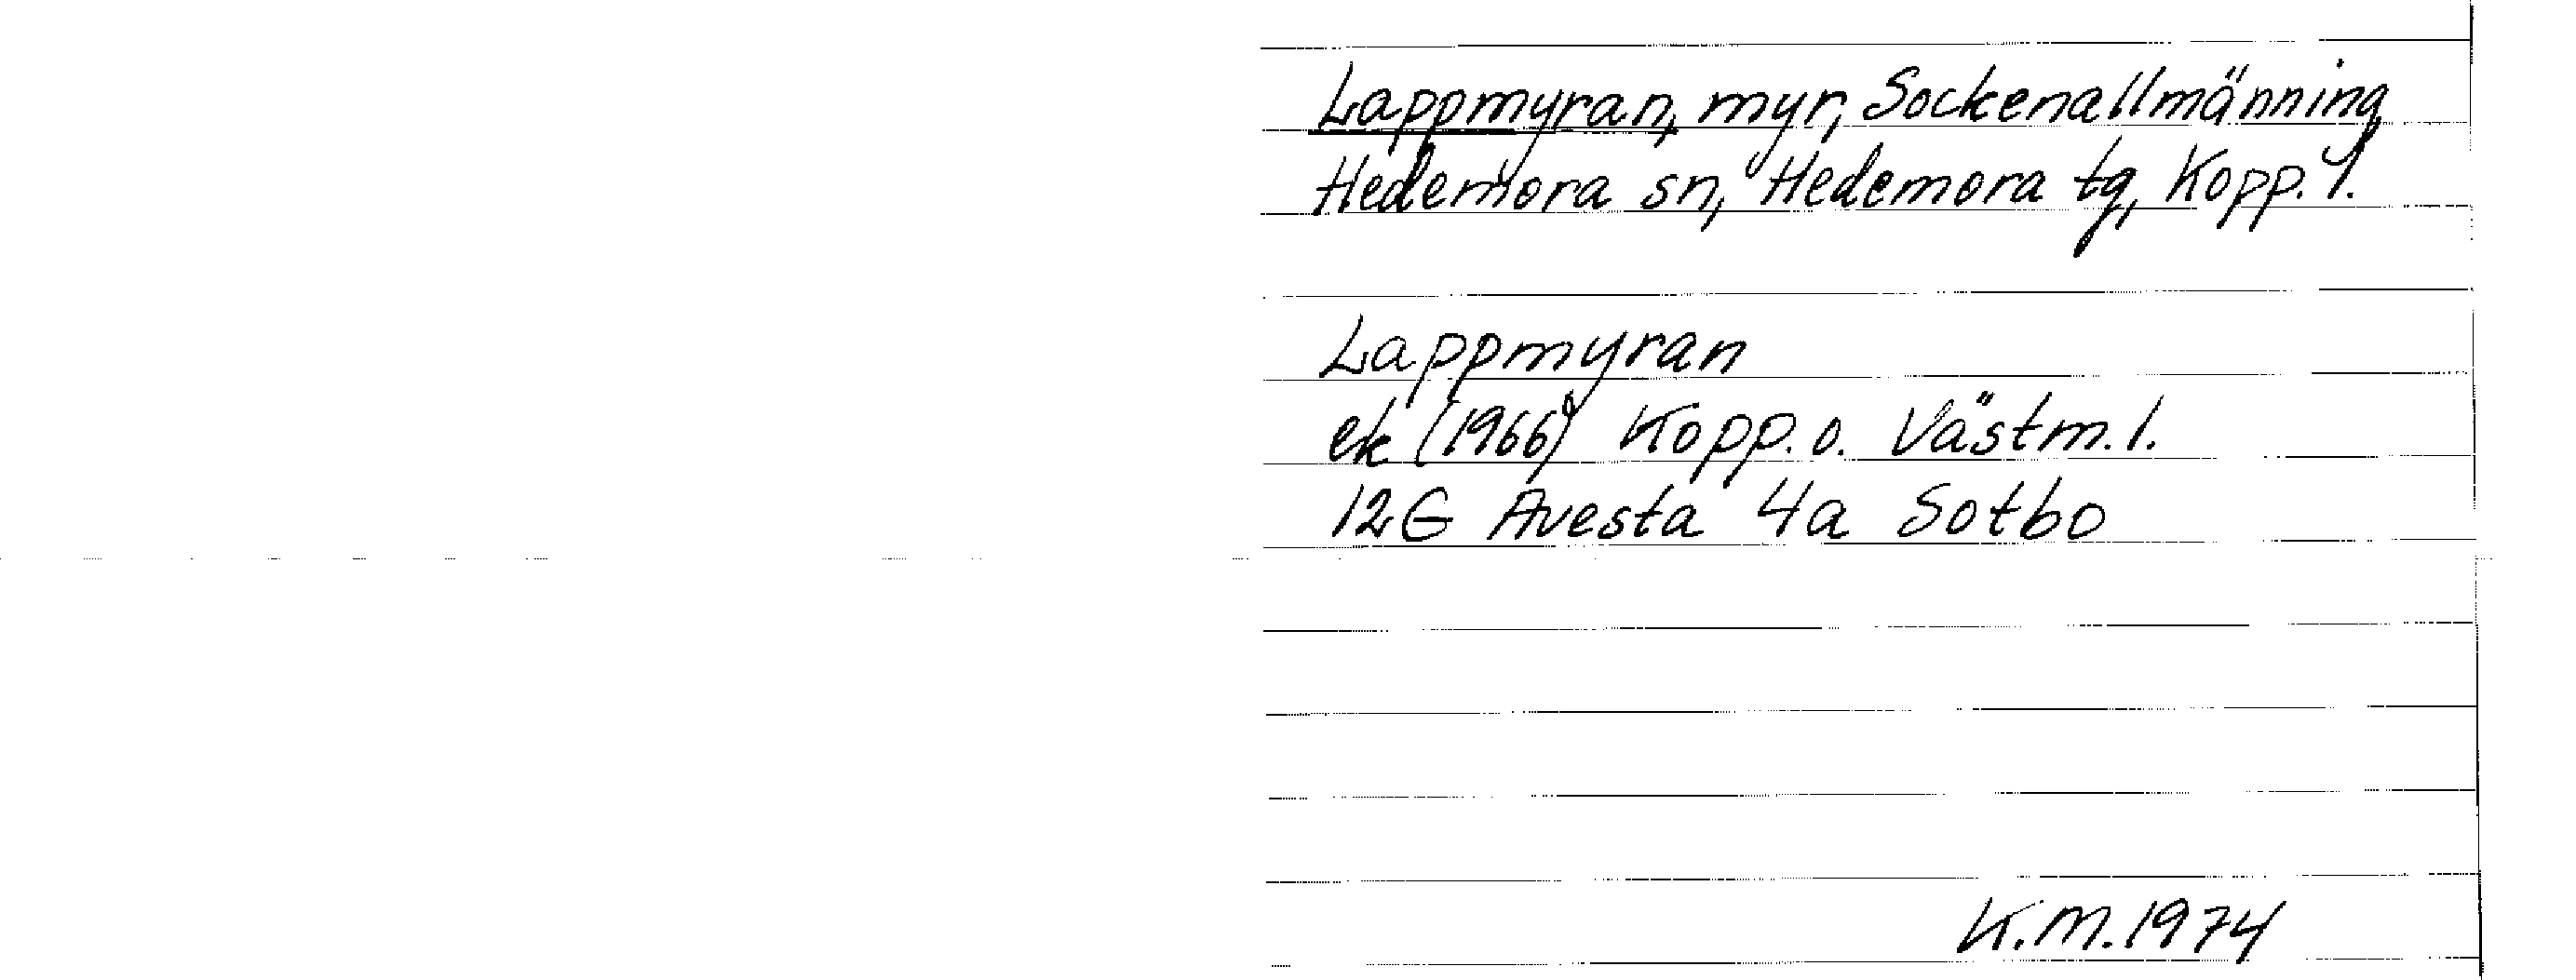 Lappmyran, myr, Sockenallmänning
Hedemora sn, Hedemora tg, Kopp. l.
Lappmyran
ek (1966) Kopp. o. Västm. l.
12G Avesta 4a Sotbo
K.M. 1974